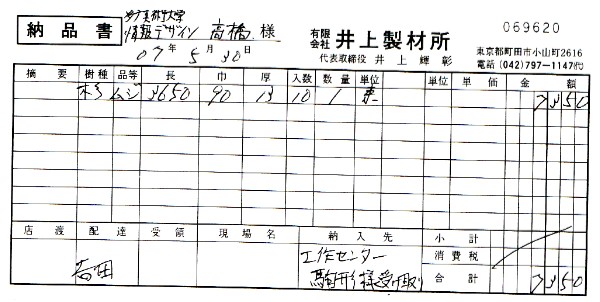 納品書
多摩美術大学
情報デザイン 高橋 様
07年 5月 30日
有限会社 井上製材所
代表取締役 井上輝彰
069620
東京都町田市小山町2616
電話(042)797-1147(代)
摘要 樹種 品等 長 巾 厚 入数 数量 単位 単価 金額
杉 ムジ 3650 90 13 10 1 束 7350
店渡 配達 受領 現場名 納入先 小計
消費税
合計 7350
吉田
工作センター
駒形様受け取り